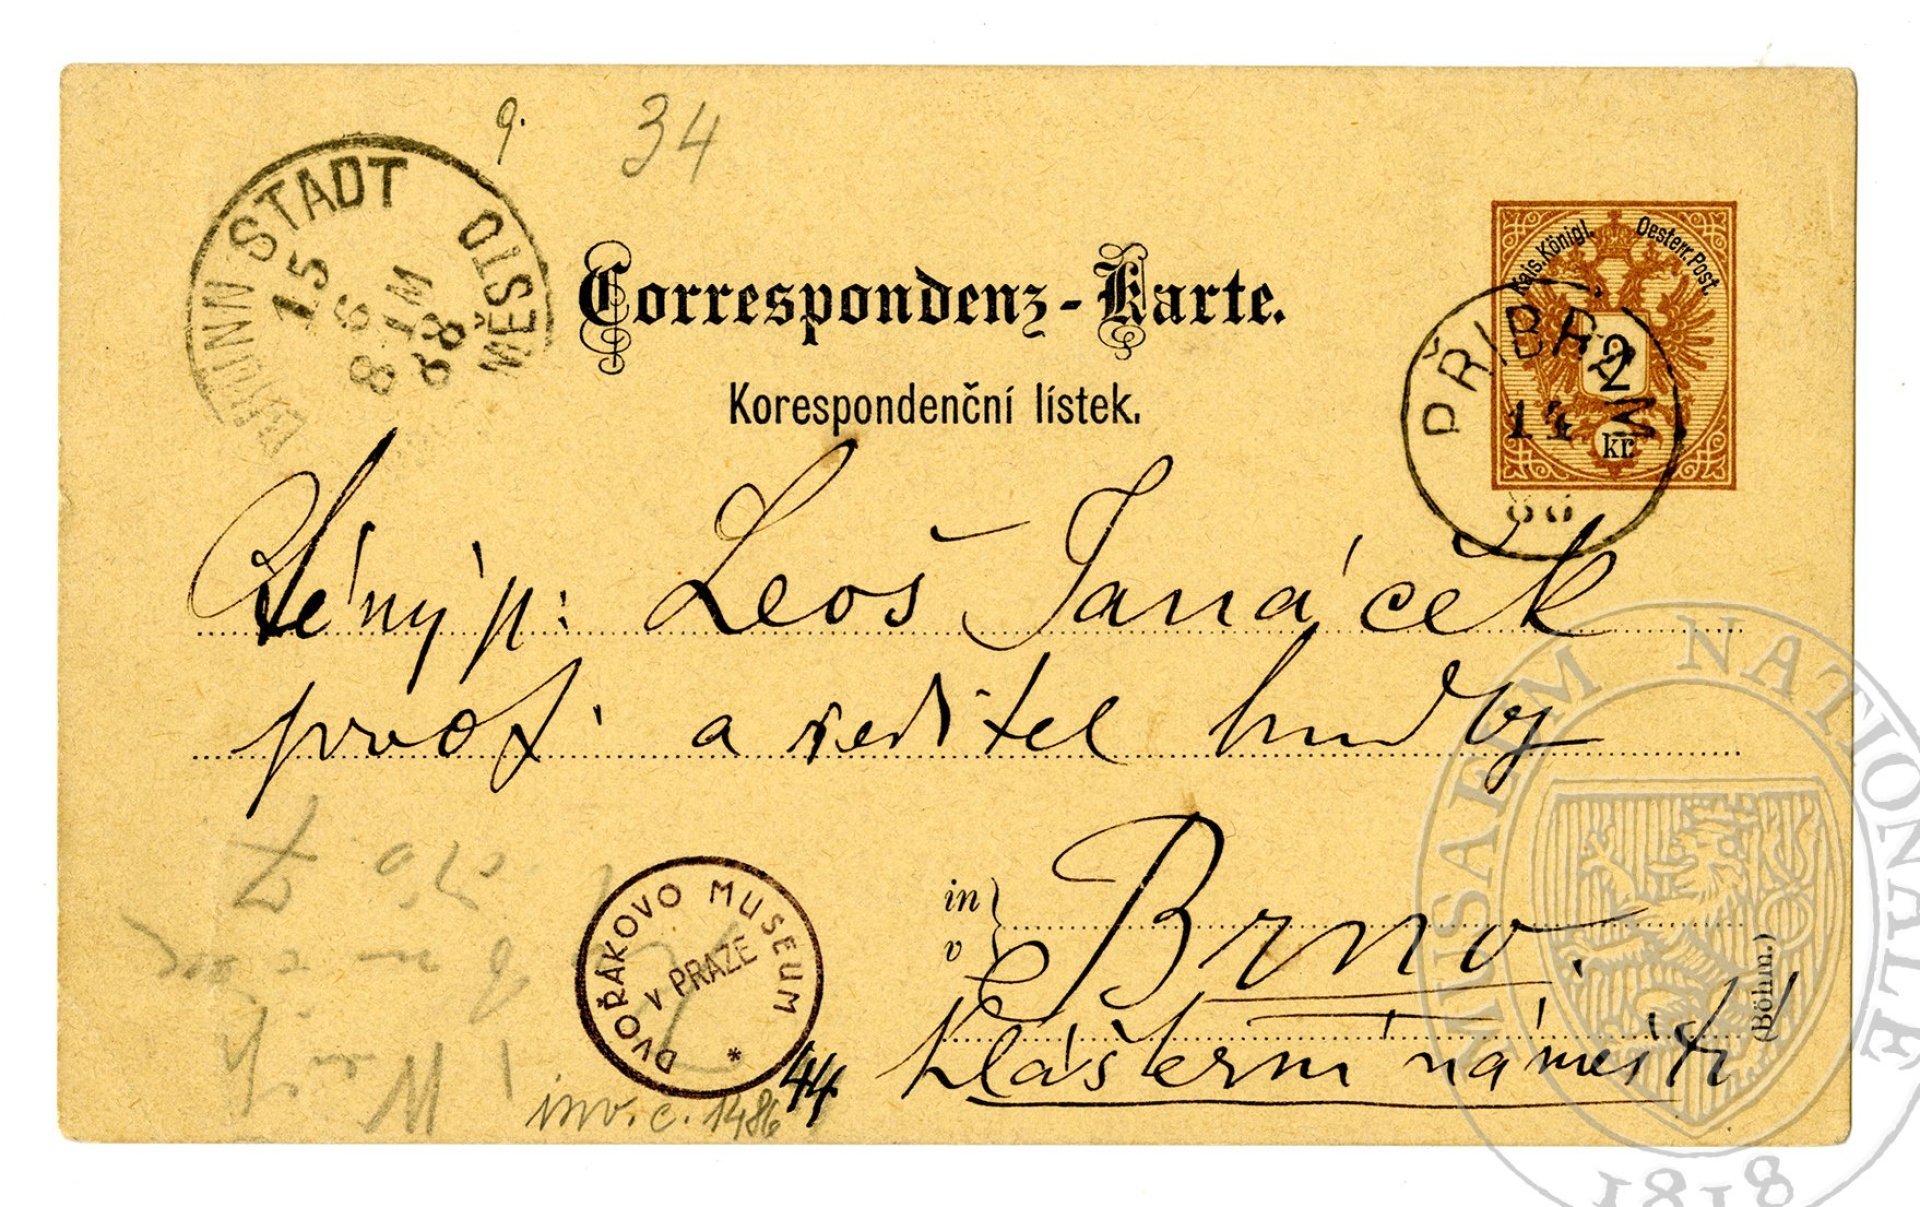 9.
34
BRÜNN STADT
MĚSTO
15
6
8-1M
88
Kais. Königl. Oesterr. Post.
2
kr.
PŘIBRAM
14
88
Correspondenz-Karte.
Korespondenční lístek.
Ctěný p: Leoš Janáček
prof. a ředitel hudby
in
v
Brno.
Klášterní náměstí
(Böhm.)
DVOŘÁKOVO MUSEUM
V PRAZE
*
inv. č. 1486
44
MUSAEUM NATIONALE
1818